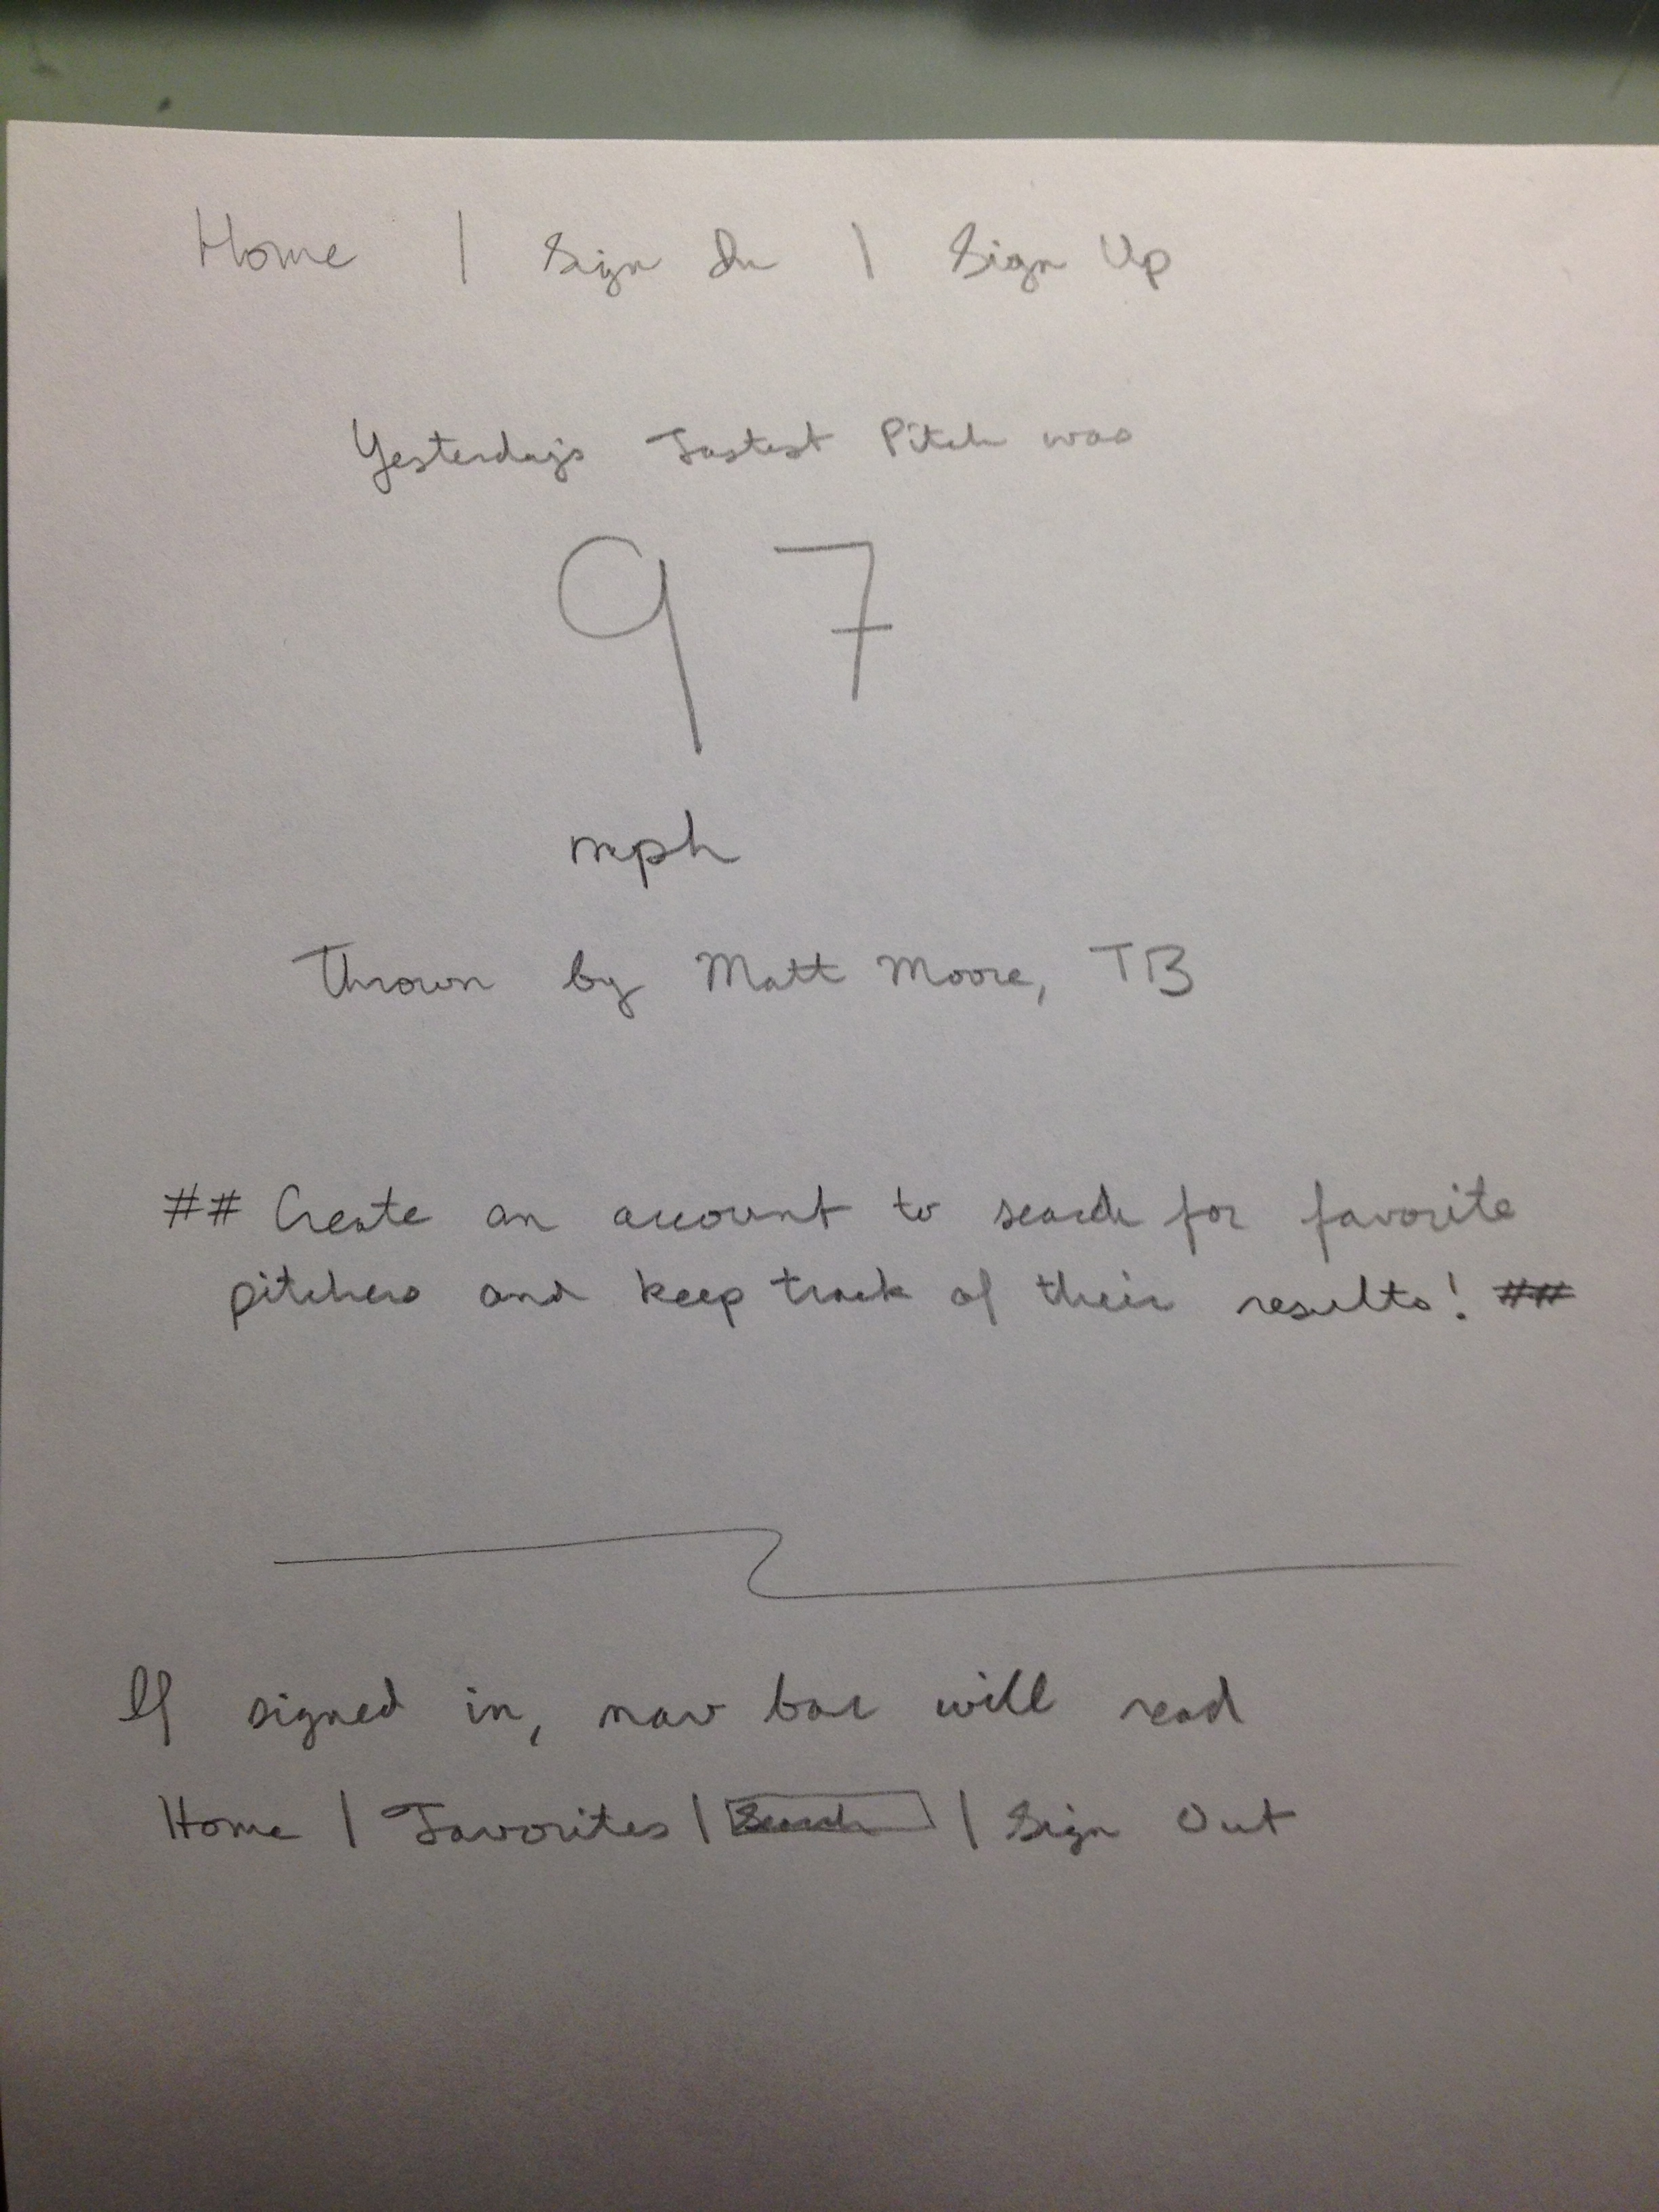 Home | Sign In | Sign Up
Yesterday's Fastest Pitch was
97
mph
Thrown by Matt Moore, TB
## Create an account to search for favorite
pitchers and keep track of their results! ##
If signed in, nav bar will read
Home | Favorites | Search | Sign Out